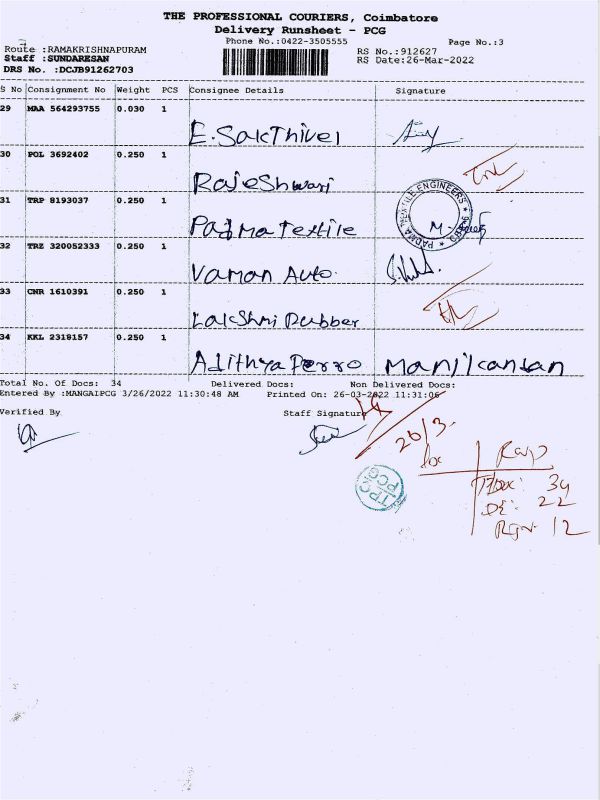 THE PROFESSIONAL COURIERS, Coimbatore
Delivery Runsheet - PCG
Phone No.:0422-3505555
Page No.:3
Route :RAMAKRISHNAPURAM
RS No.:912627
Staff :SUNDARESAN
RS Date:26-Mar-2022
DRS No. :DCJB91262703
S No Consignment No Weight PCS Consignee Details Signature
29 MAA 564293755 0.030 1
E. Sakthivel
30 POL 3692402 0.250 1
Rajeshwari
31 TRP 8193037 0.250 1
Padma Textile
PADMA TEXTILE ENGINEERS
32 TRZ 320052333 0.250 1
Vaman Auto.
33 CNR 1610391 0.250 1
Lakshmi Rubber
34 KKL 2318157 0.250 1
Adithya Ferro Manikandan
Total No. Of Docs: 34 Delivered Docs: Non Delivered Docs:
Entered By :MANGAIPCG 3/26/2022 11:30:48 AM Printed On: 26-03-2022 11:31:06
Verified By Staff Signature
26/3.
TPC
PCG
34
DE: 22
RGN: 12